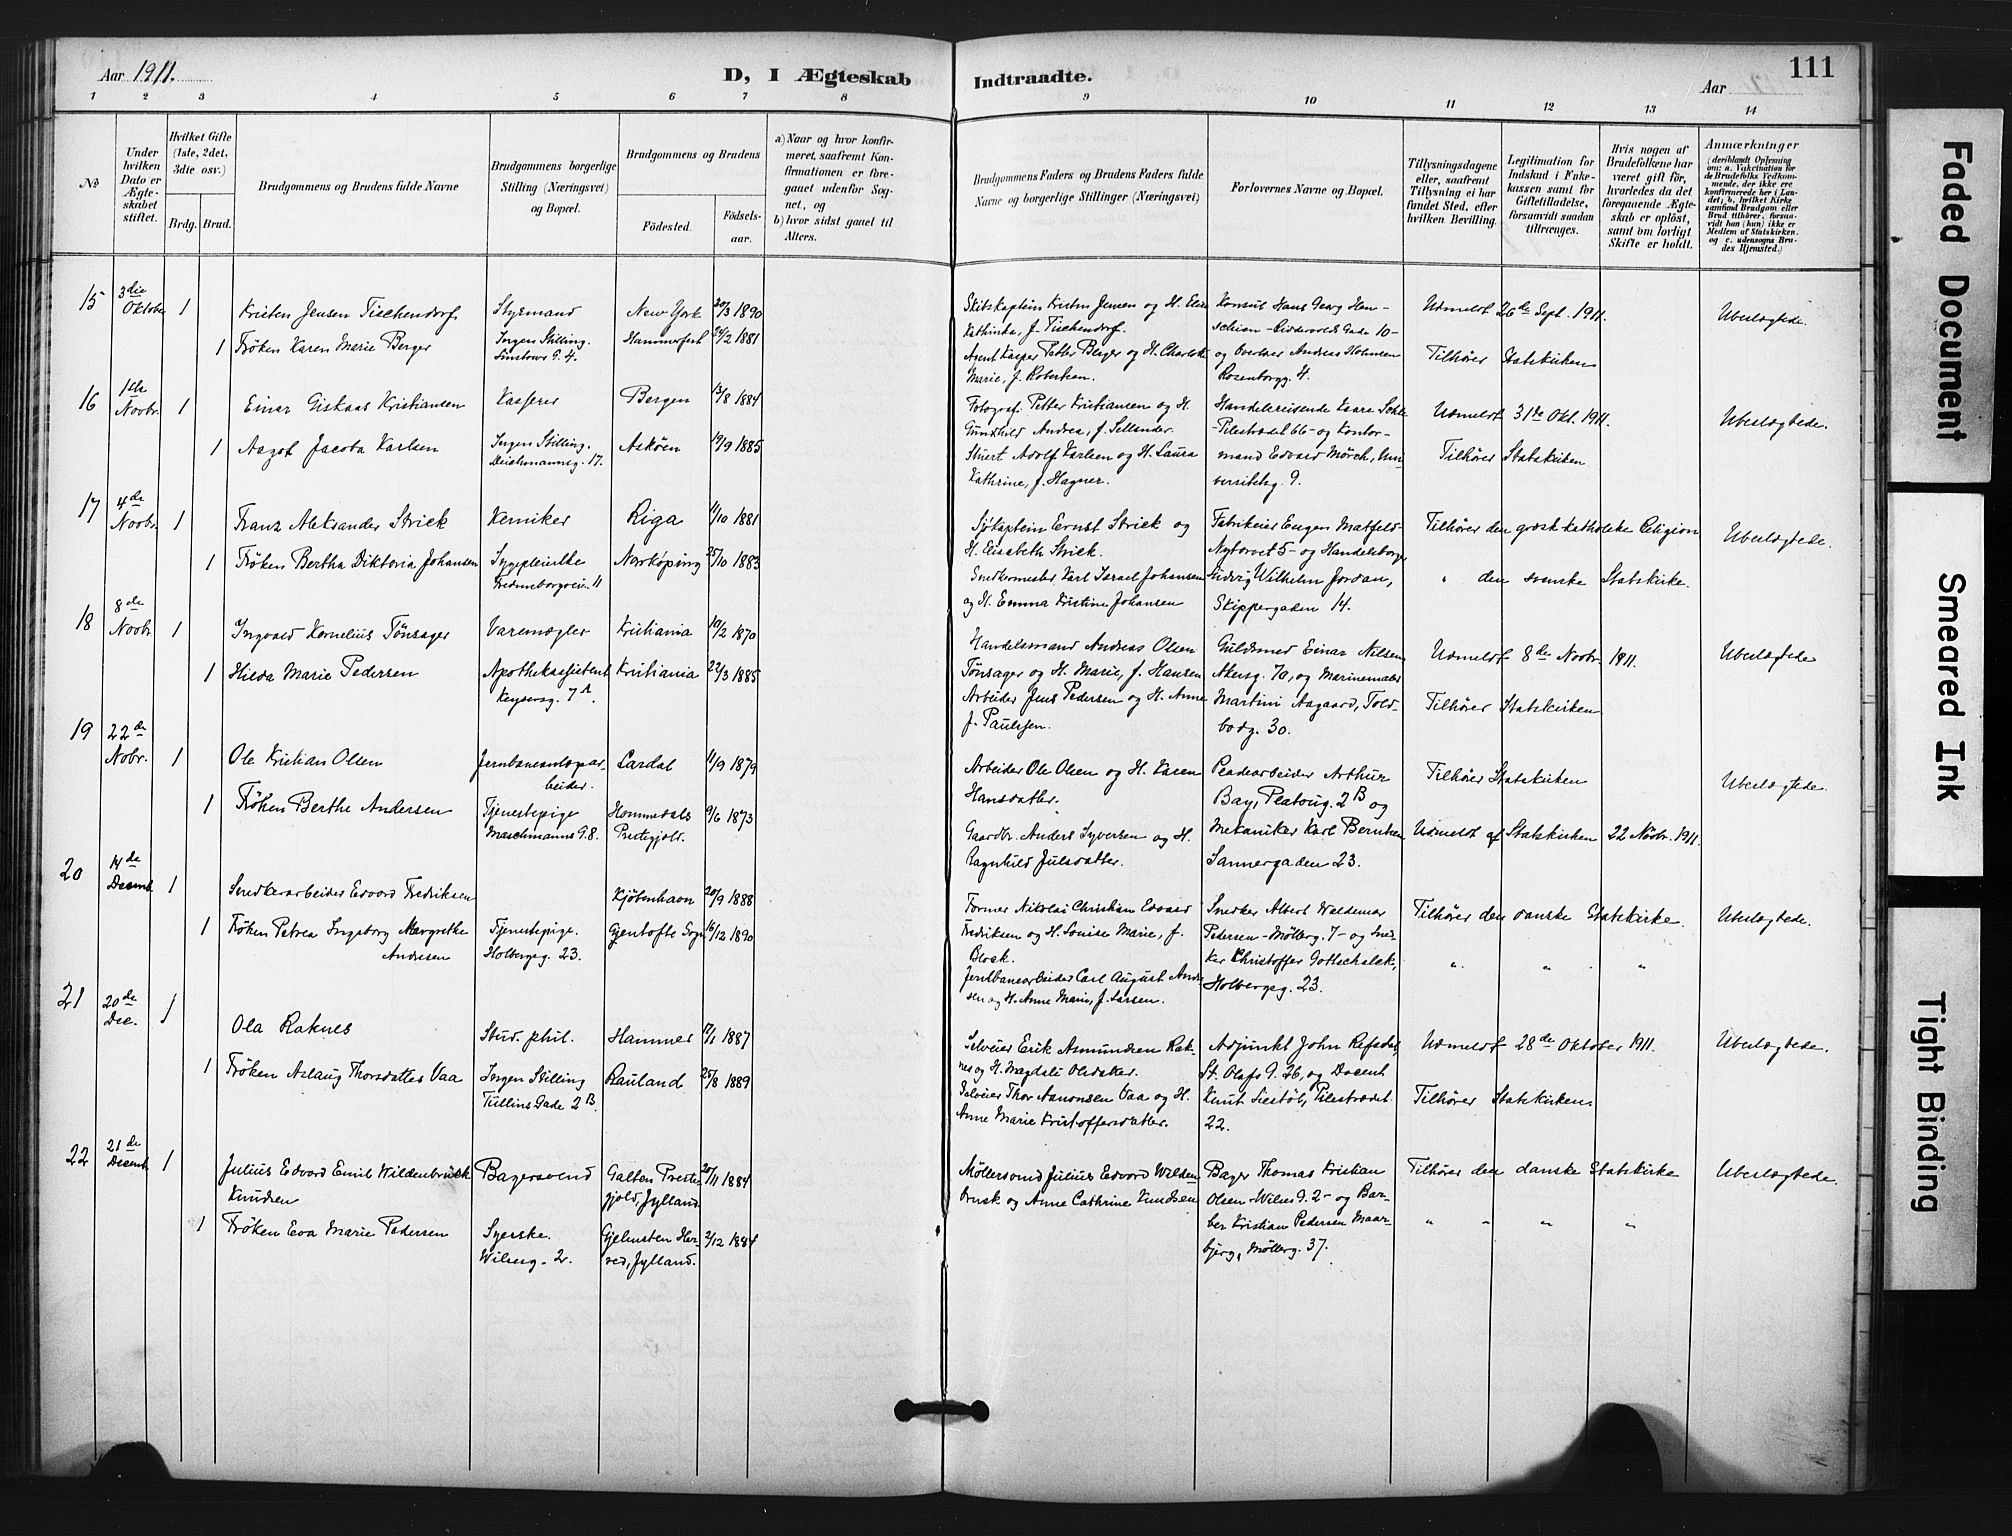 Aar 1911.
D, I Ægteskab
Indtraadte.
Aar
111
1 2 3 4 5 6 7 8 9 10 11 12 13 14
No
Under hvilken Dato er Ægteskabet stiftet.
Hvilket Gifte (1ste, 2det, 3die osv.)
Brdg. Brud.
Brudgommens og Brudens fulde Navne
Brudgommens borgerlige Stilling (Næringsvei) og Bopæl.
Brudgommens og Brudens
Fødested.
Fødselsaar.
a) Naar og hvor konfirmeret, saafremt Konfirmationen er foregaaet udenfor Sognet, og
b) hvor sidst gaaet til Alters.
Brudgommens Faders og Brudens Faders fulde Navne og borgerlige Stillinger (Næringsvei)
Forlovernes Navne og Bopæl.
Tillysningsdagene eller, saafremt Tillysning ei har fundet Sted, efter hvilken Bevilling.
Legitimation for Indskud i Enkekassen samt for Giftetilladelse, forsaavidt saadan tiltrænges.
Hvis nogen af Brudefolkene har været gift før, hvorledes da det foregaaende Ægteskab er opløst, samt om lovligt Skifte er holdt.
Anmærkninger
15 3die Oktober 1 Kristen Jensen Tischendorf Styrmand New York 20/3 1890
Skibskaptein Kristen Jensen og H. Elise Kathinka, f. Tischendorf.
Konsul Hans Georg Henschien - Riddervolds Gade 10 - og Overlærer Andreas Holmsen Rosenborgg. 4.
Udmeldt 26de Sept. 1911.
Ubeslægtede.
1 Frøken Karen Marie Berger Ingen Stilling. Hammerfest 24/2 1881
Agent Kasper Petter Berger og H. Charlotte Marie, f. Robertsen.
Tilhører Statskirken
16 1ste Novbr. 1 Einar Giskaas Kristiansen Kasserer Bergen 13/8 1884
Fotograf Petter Kristiansen og H. Gunhild Andrea, f. Sellander.
Handelsreisende Kaare - Pilestrædet 66 - og Kontormand Edvard Mørch, Universitetsg. 9.
Udmeldt 31te Okt. 1911.
Ubeslægtede.
1 Aagot Jacoba Karlsen Ingen Stilling. Deichmannsg. 17. Askøen 19/9 1885
Stuert Adolf Karlsen og H. Laura Kathrine, f. Hagner.
Tilhører Statskirken
17 4de Novbr. 1 Franz Aleksander Strick Kemiker Riga 11/10 1881
Sjøkaptein Ernst Strick og H. Elisabeth Strick.
Fabrikeier Eugen Matfeld - Nytorvet 5 - og Handelsborger Ludvig Wilhelm Jordan, Skippergaden 14.
Tilhører den græsk katholske Religion
Ubeslægtede.
1 Frøken Bertha Viktoria Johansen Sygepleierske Fredensborgvein 11 Norrköping 25/10 1883
Snedkermester Karl Israel Johansen og H. Emma Kristine Johansen
" den svenske Statskirke.
18 8de Novbr. 1 Ingvald Kornelius Tønsager Varemægler Kristiania 10/2 1870
Handelsmand Andreas Olsen Tønsager og H. Marie, f. Hansen
Guldsmed Einar Nilsen, Akersg. 76, og Marinemaler Martin Aagaard, Toldbodg. 30.
Udmeldt 8de Novbr. 1911.
Ubeslægtede
1 Hilda Marie Pedersen Apothekassistent Keysersg. 7A. Kristiania 22/3 1885
Arbeider Jens Pedersen og H. Anne f. Paulsen.
Tilhører Statskirken
19 22de Nobr. 1 Ole Kristian Olsen Jernbaneanlægsarbeider. Lardal 11/9 1879
Arbeider Ole Olsen og H. Karen Hansdatter.
Pladearbeider Arthur Bay, Platoug. 2B og Mekaniker Karl Berntsen Sannergaden 23.
Tilhører Statskirken
Ubeslægtede.
1 Frøken Berthe Andersen Tjenestepige Maschmanns G. 8. Hommedals Prestegjeld. 9/6 1873
Gaardbr. Anders Syversen og H. Ragnhild Julsdatter.
Udmeldt af Statskirken 22 Novbr. 1911.
20 14de Decemb. 1 Snedkerarbeider Edvard Fredriksen Kjøbenhavn 20/9 1888
Former Nikolai Christian Edvard Fredriksen og H. Louise Marie, f. Block.
Snedker Albert Waldemar Pedersen - Møllerg. 7 - og Snedker Christoffer Gottschalck, Holbergsg. 23.
Tilhører den danske Statskirke.
Ubeslægtede.
1 Frøken Petrea Ingeborg Margrethe Andersen Tjenestepige. Holbergsg. 23. Gjentofte Sogn 16/12 1890
Jernbanearbeider Carl August Andersen og H. Anne Marie, f. Larsen.
" " "
21 20de Dec. 1 Ola Raknes Stud. phil. Hammer 17/1 1887
Selveier Erik Asmundsen Raknes og H. Magdali Olsdatter.
Adjunkt John Refsdal, St. Olafs G. 26, og Docent Knut Liestøl, Pilestrædet 22.
Udmeldt 28de Oktober 1911.
Ubeslægtede.
1 Frøken Aslaug Thorsdatter Vaa Ingen Stilling Tullins Gade 2B. Rauland 25/8 1889
Selveier Thor Aanonsen Vaa og H. Anne Marie Kristoffersdatter.
Tilhører Statskirken.
22 21de Decemb. 1 Julius Edvard Emil Wildenbrück Knudsen Bagersvend Galten Prestegjeld, Jylland 20/11 1884
Møllersvend Julius Edvard Wildenbrück og Anne Cathrine Knudsen
Bager Thomas Kristian Olsen - Wilses G. 2 - og Barber Kristian Pedersen Maarbjerg, Møllerg. 37.
Tilhører den danske Statskirke
Ubeslægtede.
1 Frøken Eva Marie Pedersen Syerske. Wilsesg. 2. Gjelmsten Herred, Jylland. 2/12 1884
" " " "
Faded Document
Smeared Ink
Tight Binding